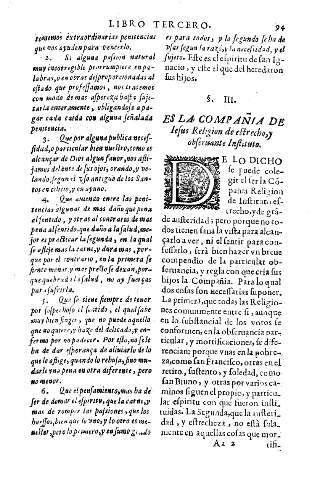 LIBRO TERCERO.
94
tomemos extraordinarias penitencias
que nos ayuden para vencerlo.
2. Si alguna passion natural
muy incorregible prorrumpiere en pa-
labras, o en obras desproporcionadas al
estado que professamos, nos tratemos
con modo de mas aspereza hasta suje-
tarla enteramente, obligandose a pa-
gar cada caida con alguna señalada
penitencia.
3. Que por alguna publica necess-
idad, o particular bien nuestro, como es
alcançar de Dios algun favor, nos asli-
jamos delante de sus ojos, orando, y ve-
lando, segun el uso antiguo de los San-
tos en cilicio, y en ayuno.
4. Que aviendo entre las peni-
tencias algunas de mas daño que pena
el sentido, y otras al contrario de mas
pena al sentido que daño a la salud, me-
jor es practicar la segunda, en la qual
se aflige mas la carne, y dura mas, por-
que por el contrario, en la primera se
siente menos, y mas presto se dexan, por-
que quebrada la salud, no ay fuerças
par sufrirla.
5. Que se tiene siempre de tener
por sospechoso el sentido, el qual sabe
muy bien fingir, que no puede aquello
que no quiere, y haze del delicado, y en-
fermo por no padecer. Por esto, no se le
ha de dar esperança de aliviarle de lo
que le aflige, quando lo rehusa, sino mu-
darle una pena en otra diferente, pero
no menor.
6. Que el pensamiento, mas ha de
ser de domar el espiritu, que la carne, y
mas de romper las passiones, que los
huessos, bien que lo uno, y lo otro es me-
nester, pero lo primero, y en sumo grado
es para todos, y la segunda se ha de
usar segun la razõ, y la necessidad, y el
sujeto. Este es el espiritu de san Ig-
nacio, y este el que del heredaron
sus hijos.
§. III.
ES LA COMPAÑIA DE
Jesus Religion de estrecho, y
observante Instituto.
DE LO DICHO
se puede cole-
gir el ser la Cõ-
pañia Religion
de Instituto es-
trecho, y de grã-
de austeridad; pero porque no to-
dos tienen sana la vista para alcan-
çarlo a ver, ni el sentir para con-
fessarlo, será bien hazer vn breve
compendio de la particular ob-
servancia, y regla con que cria sus
hijos la Compañia. Para lo qual
dos cosas son necessarias suponer.
La primera, que todas las Religio-
nes comunmente entre si, aunque
en lo substancial de los votos se
conformen, en la observancia par-
ticular, y mortificaciones, se dife-
rencian; porque vnas en la pobre-
za, como san Francisco, otras en el
retiro, sustento, y soledad, como
san Bruno, y otras por varios ca-
minos siguen el propio, y particu-
lar espiritu con que fueron insti-
tuidas. La Segunda, que la austeri-
dad, y estrecheza, no está sola-
mente en aquellas cosas que mor-
Aa 2
tifi-